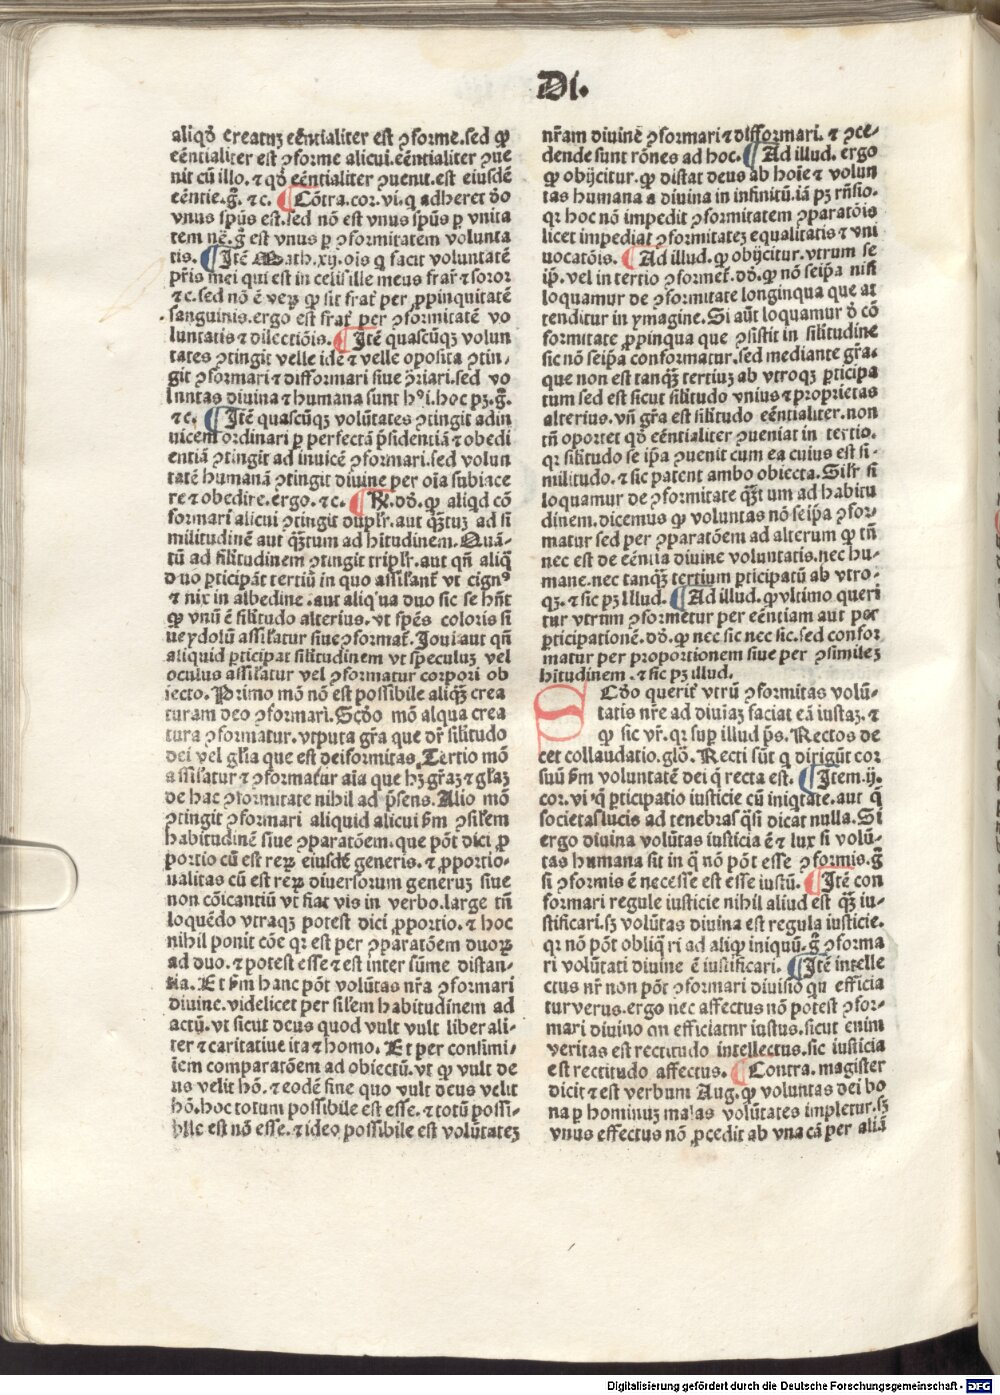 Di.
aliqđ creatuʒ eēntialiter est ꝯforme.sed ꝙ
eēntialiter est ꝯforme alicui.eēntialiter ꝯue
nit cū illo.⁊ qđ eēntialiter ꝯuenit.est eiusdē
eēntie.g̃. ⁊c. Cōtra.cor.vi.q adheret đo
vnus spūs est.sed nō est vnus spūs ꝑ vnita
tem nē.g̃ est vnus ꝑ ꝯformitatem volunta
tis. Itē Math.xij.oīs q facit voluntatē
pr̄is mei qui est in celis ille meus frat̄ ⁊ soror
⁊c.sed nō ē veꝝ ꝙ sit frat̄ per ꝓpinquitatē
sanguinis.ergo est frat̄ per ꝯformitatē vo
luntatis ⁊ dilectiōis. Itē quascūqʒ volun
tates ꝯtingit velle idē ⁊ velle opposita ꝯtin⸗
git ꝯformari ⁊ difformari siue ꝯr̄iari.sed vo
luntas diuina ⁊ humana sunt hꝰi.hoc pʒ.g̃.
⁊c. Itē quascūqʒ volūtates ꝯtingit adin
uicem ordinari ꝑ perfectā p̄sidentiā ⁊ obedi
entiā ꝯtingit ad inuicē ꝯformari.sed volun
tatē humanā ꝯtingit diuine per oīa subiace
re ⁊ obedire.ergo.⁊c. R̄.đđ.ꝙ aliqd cō
formari alicui ꝯtingit duplr̄.aut qʒ̄tuʒ ad si
militudinē aut qʒ̄tum ad hītudinem.Quā⸗
tū ad similitudinem ꝯtingit triplr̄.aut qn̄ aliq̄
duo ꝑticipāt tertiū in quo assilant̄ vt cignꝰ
⁊ nix in albedine.aut aliqua duo sic se hn̄t
ꝙ vnū ē silitudo alterius.vt spēs coloris si
ue ydolū assilatur siue ꝯformat̄.Ioui aut qn̄
aliquid ꝑticipat silitudinem vt speculuʒ vel
oculus assilatur vel ꝯformatur corpori ob
iecto.Primo mō nō est possibile aliqʒ̄ crea
turam deo ꝯformari.Scđo mō alqua crea
tura ꝯformatur.vtputa gr̄a que dr̄ silitudo
dei vel glīa que est deiformitas.Tertio mō
assilatur ⁊ ꝯformatur aīa que hʒ gr̄aʒ ⁊ glāʒ
de hac ꝯformitate nihil ad p̄sens.Alio mō
ꝯtingit ꝯformari aliquid alicui ẜm ꝯsilem
habitudinē siue ꝯparatōem.que pōt dici ꝓ
portio cū est reꝝ eiusdē generis.⁊ ꝓportio⸗
nalitas cū est reꝝ diuersorum generuʒ siue
non cōicantiū vt fiat vis in verbo.large tn̄
loquēdo vtraqʒ potest dici ꝓportio.⁊ hoc
nihil ponit cōe qr est per ꝯparatōem duoꝝ
ad duo.⁊ potest esse ⁊ est inter sūme distan⸗
tia.Et ẜm hanc pōt volūtas nr̄a ꝯformari
diuine.videlicet per silem habitudinem ad
actū.vt sicut deus quod vult vult liberali⸗
ter ⁊ caritatiue ita ⁊ homo.Et per consimi⸗
lem comparatōem ad obiectū.vt ꝙ vult de
us velit hō.⁊ eodē fine quo vult deus velit
hō.hoc totum possibile est esse.⁊ totū possi⸗
bile est nō esse.⁊ ideo possibile est volūtateʒ
nr̄am diuine ꝯformari ⁊ difformari.⁊ ꝯce⸗
dende sunt rōnes ad hoc. Ad illud.ergo
ꝙ obijcitur.ꝙ distat deus ab hoīe ⁊ volun
tas humana a diuina in infinitū.iā pʒ rn̄sio.
qr hoc nō impedit ꝯformitatem ꝯparatōis
licet impediat ꝯformitateʒ equalitatis ⁊ vni
uocatōis. Ad illud.ꝙ obijcitur.vtrum se
ip̄.vel in tertio ꝯformet̄.đđ.ꝙ nō seip̄a nisi
loquamur de ꝯformitate longinqua que at
tenditur in ymagine.Si aūt loquamur đ cō
formitate ꝓpinqua que ꝯsistit in silitudine
sic nō seip̄a conformatur.sed mediante gr̄a⸗
que non est tanqʒ̄ tertiuʒ ab vtroqʒ ꝑticipa
tum sed est sicut silitudo vnius ⁊ proprietas
alterius.vn̄ gr̄a est silitudo eēntialiter.non
tn̄ oportet qđ eēntialiter ꝯueniat in tertio.
qr silitudo se ip̄a ꝯuenit cum ea cuius est si⸗
militudo.⁊ sic patent ambo obiecta.Silr̄ si
loquamur de ꝯformitate qʒ̄tum ad habitu
dinem.dicemus ꝙ voluntas nō seip̄a ꝯfor⸗
matur sed per ꝯparatōem ad alterum ꝙ tn̄
nec est de eēntia diuine voluntatis.nec hu⸗
mane.nec tanqʒ̄ tertium ꝑticipatū ab vtro⸗
qʒ.⁊ sic pʒ illud. Ad illud.ꝙ vltimo queri
tur vtrum ꝯformetur per eēntiam aut per
ꝑticipationē.đđ.ꝙ nec sic nec sic.sed confor
matur per proportionem siue per ꝯsimileʒ
hītudinem.⁊ sic pʒ illud.
Scđo querit̄ vtrū ꝯformitas volū⸗
tatis nr̄e ad diuinaʒ faciat eā iustaʒ.⁊
ꝙ sic vr̄.qr suꝑ illud ps̄.Rectos de
cet collaudatio.glō.Recti sūt q dirigūt cor
suū ẜm voluntatē dei q̄ recta est. Item.ij.
cor.vi.q̄ ꝑticipatio iusticie cū iniqtate.aut q̄
societas lucis ad tenebras q̄si dicat nulla.Si
ergo diuina volūtas iusticia ē ⁊ lux si volū⸗
tas humana sit in q̄ nō pōt esse ꝯformis.g̃
si ꝯformis ē necesse est esse iustū. Itē con
formari regule iusticie nihil aliud est qʒ̄ iu⸗
stificari.sʒ volūtas diuina est regula iusticie.
qr nō pōt obliq̄ri ad aliqͥ iniquū.g̃ ꝯforma
ri volūtati diuine ē iustificari. Itē intelle
ctus nr̄ non pōt ꝯformari diuino qn efficia
tur verus.ergo nec affectus nō potest ꝯfor⸗
mari diuino qn efficiatur iustus.sicut enim
veritas est rectitudo intellectus.sic iusticia
est rectitudo affectus. Contra.magister
dicit ⁊ est verbum Aug.ꝙ voluntas dei bo
na ꝑ hominuʒ malas volūtates impletur.sʒ
vnus effectus nō ꝓcedit ab vna cā per aliā
Digitalisierung gefördert durch die Deutsche Forschungsgemeinschaft - DFG